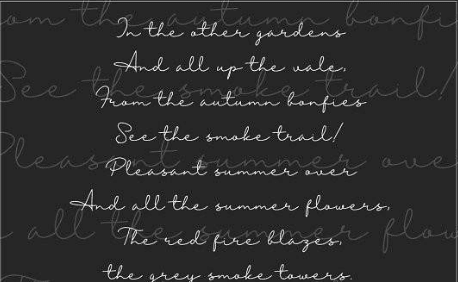 In the other gardens
And all up the vale,
From the autumn bonfies
See the smoke trail!
Pleasant summer over
And all the summer flowers,
The red fire blazes,
the grey smoke towers.